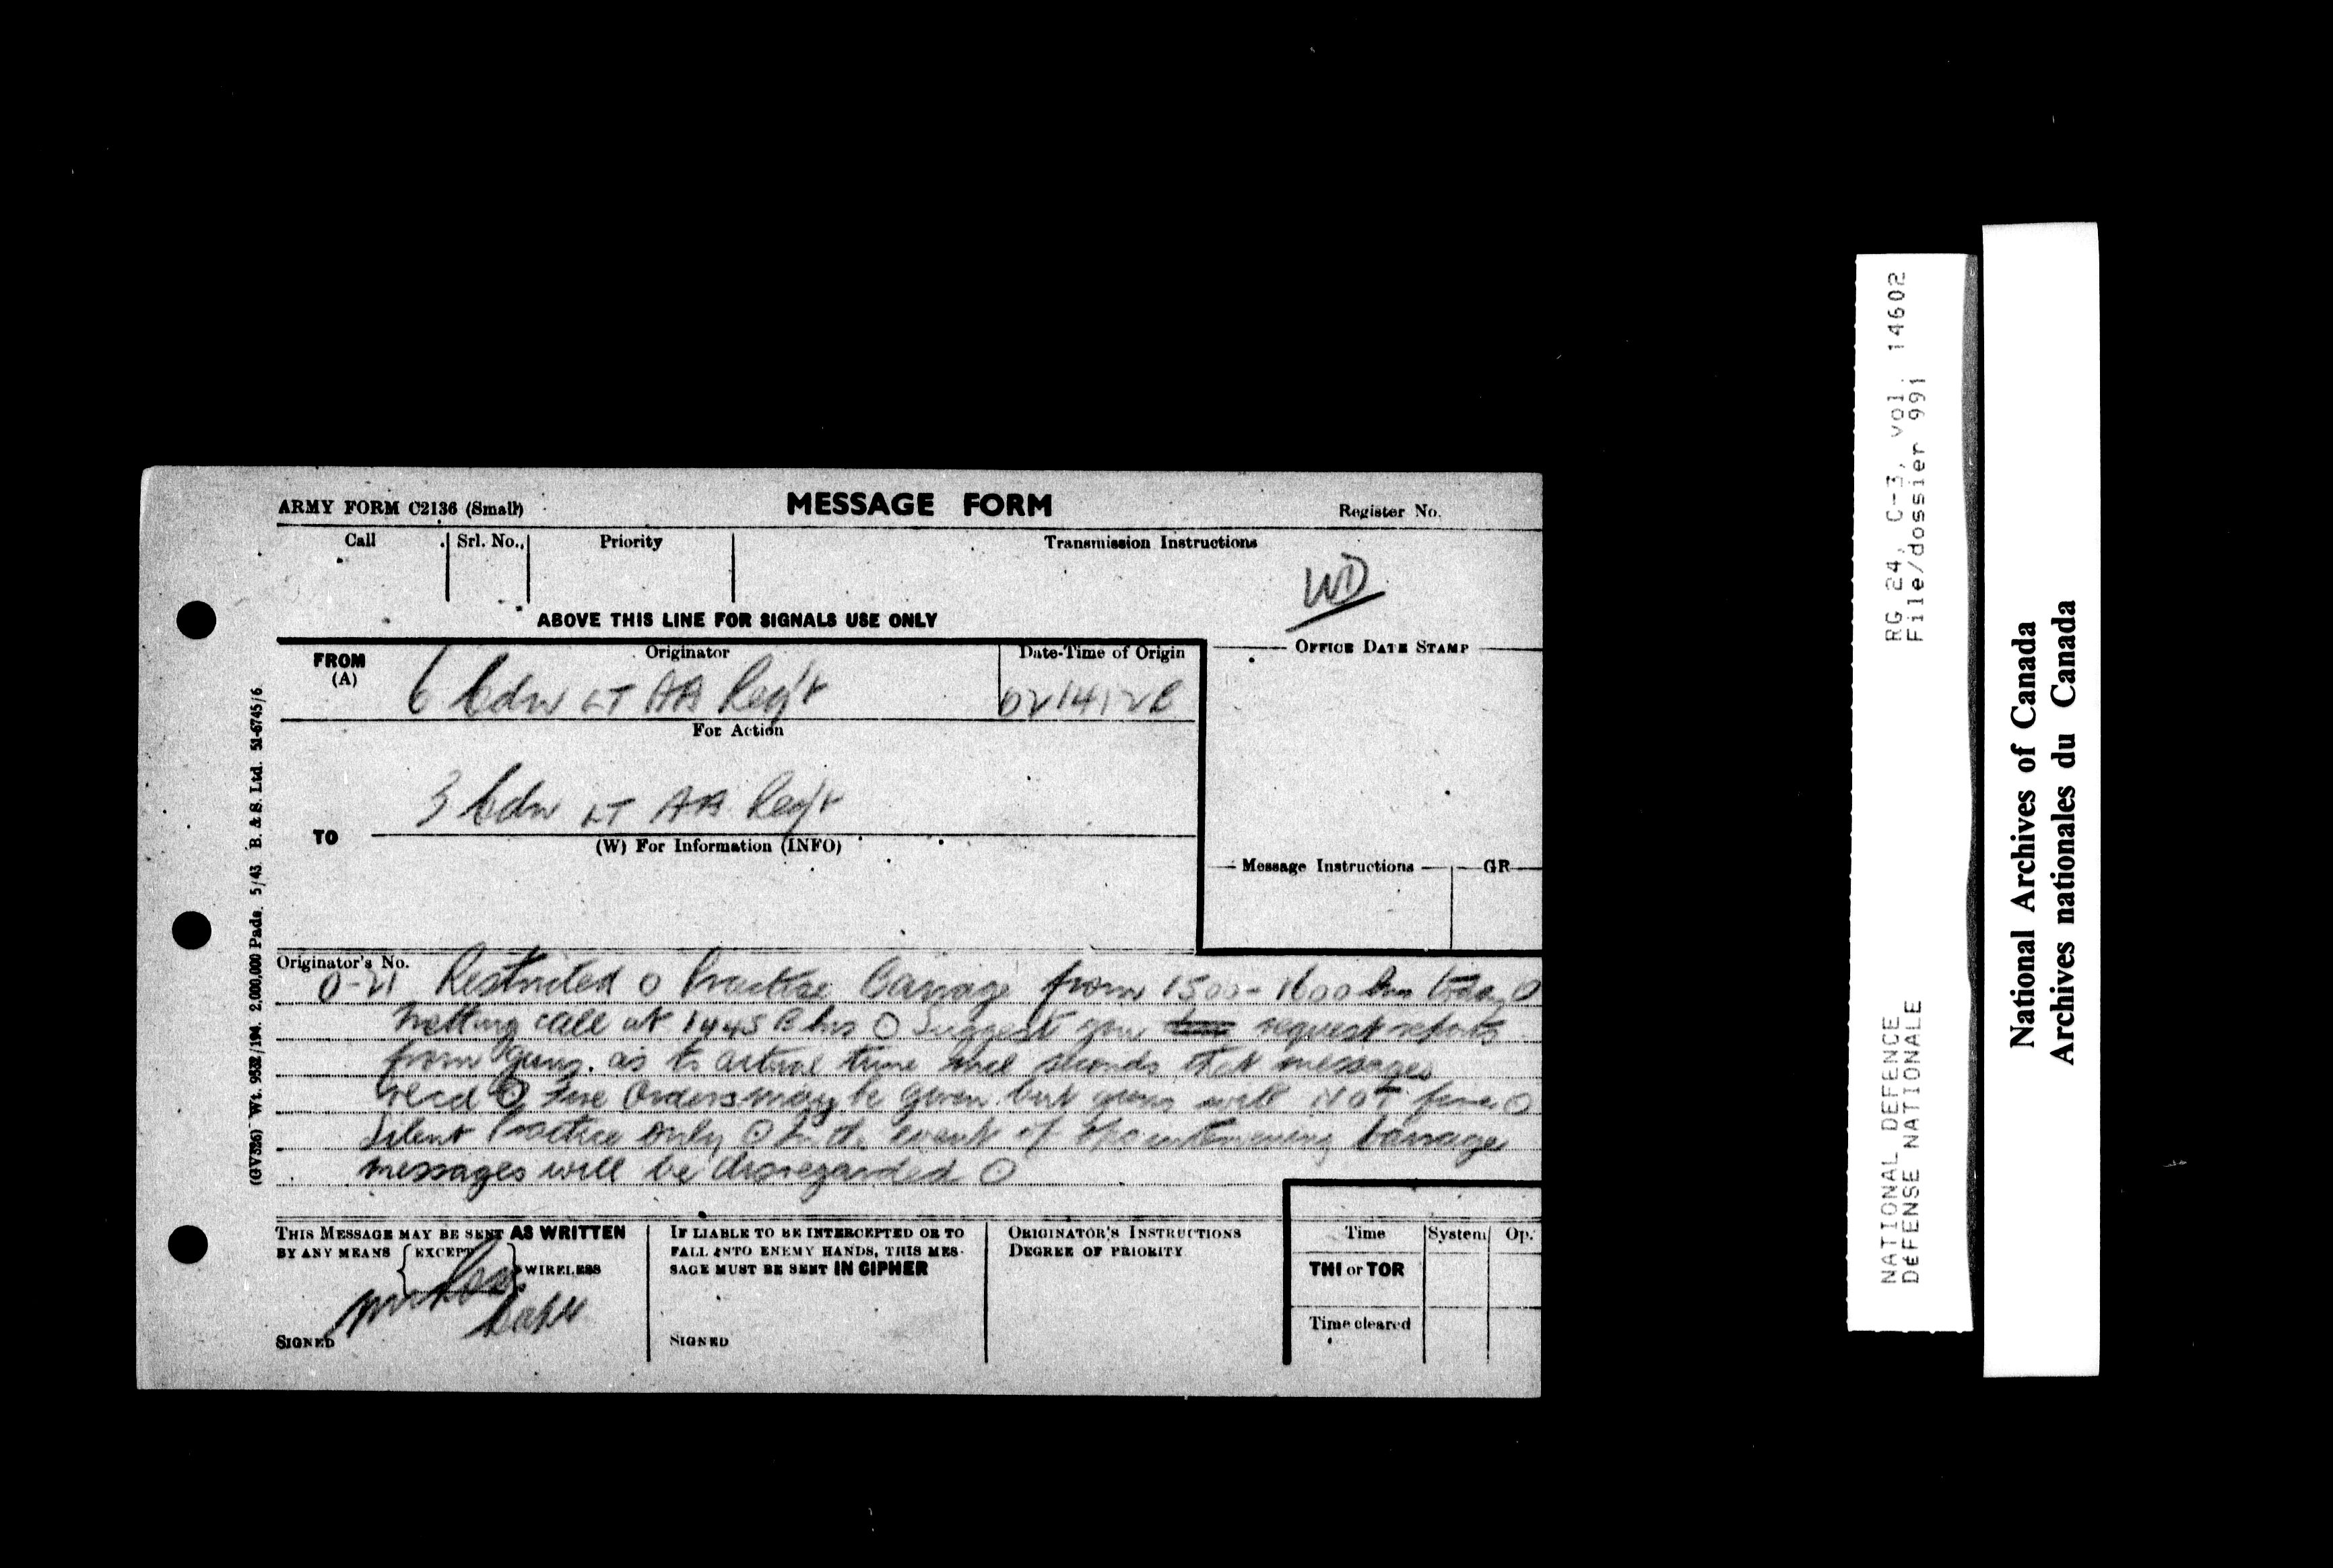 ARMY FORM C2136 (Small)
MESSAGE FORM
Register No.
Call
Srl. No.
Priority
Transmission Instructions
WD
ABOVE THIS LINE FOR SIGNALS USE ONLY
FROM (A)
Originator
Date-Time of Origin
OFFICE DATE STAMP
6 Cdn LT AA Reg't
021412B
For Action
3 Cdn LT AA Reg't
TO
(W) For Information (INFO)
Message Instructions
GR
Originator's No.
O-21 Restricted O Practise Barrage from 1500 - 1600 hrs today O
Netting call at 1445 B hrs O Suggest you request reports
from guns. as to actual time and seconds that messages
recd O Fire Orders may be given but guns will NOT fire. O
Silent Practice only O In the event of intervening barrage
messages will be disregarded O
THIS MESSAGE MAY BE SENT AS WRITTEN
BY ANY MEANS { EXCEPT } WIRELESS
Capt
SIGNED
IF LIABLE TO BE INTERCEPTED OR TO
FALL INTO ENEMY HANDS, THIS MES-
SAGE MUST BE SENT IN CIPHER
SIGNED
ORIGINATOR'S INSTRUCTIONS
DEGREE OF PRIORITY
Time
System
Op.
THI or TOR
Time cleared
(GV326) Wt. 9532/194. 2,000,000 Pads. 5/43. B. & S. Ltd. 51-6745/6
RG 24, C-3, vol. 14602
File/dossier 991
NATIONAL DEFENCE
DÉFENSE NATIONALE
National Archives of Canada
Archives nationales du Canada